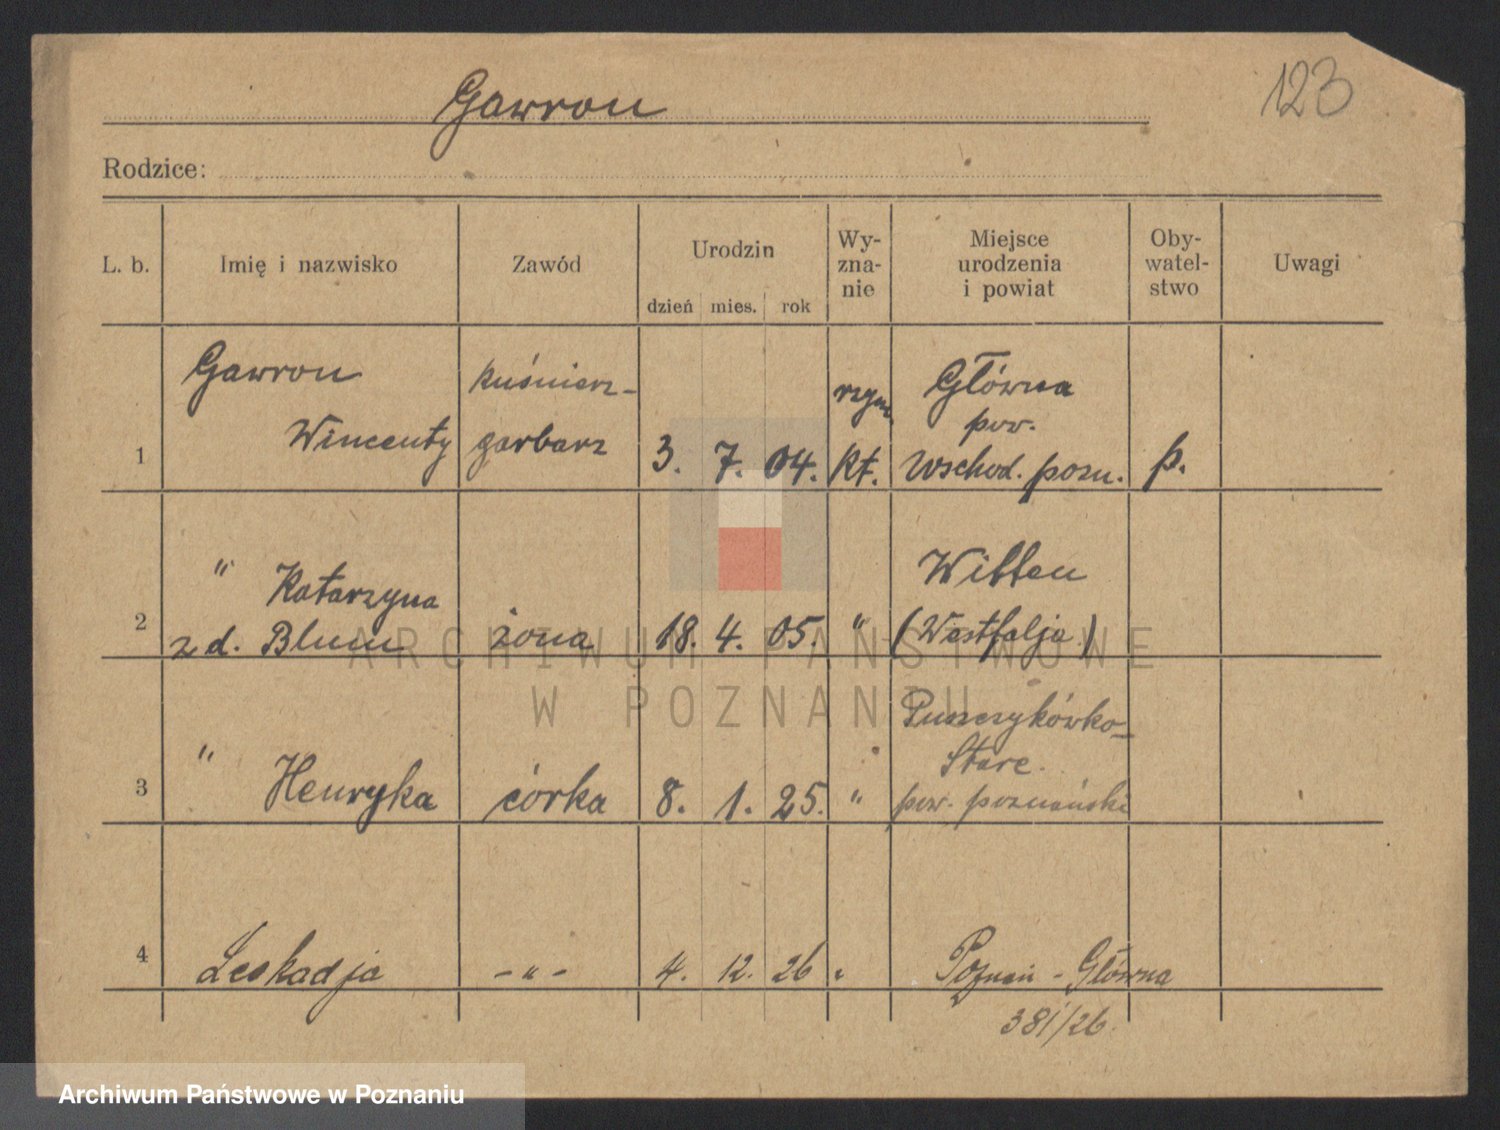 123
Gawron
Rodzice:
L. b. Imię i nazwisko Zawód Urodzin dzień mies. rok Wy-zna-nie Miejsce urodzenia i powiat Oby-watel-stwo Uwagi
Gawron kuśnierz- rzym. Główna
pow.
1 Wincenty garbarz 3. 7. 04. kt. Wschod. pozn. p.
" Katarzyna Witten
2 z d. Blum żona 18. 4. 05. " (Westfalja)
ARCHIWUM PAŃSTWOWE
W POZNANIU
" Puszczykówko-
Stare
3 Henryka córka 8. 1. 25. " pow. poznański
4 Leokadja -"- 4. 12. 26 " Poznań - Główna
381/26.
Archiwum Państwowe w Poznaniu